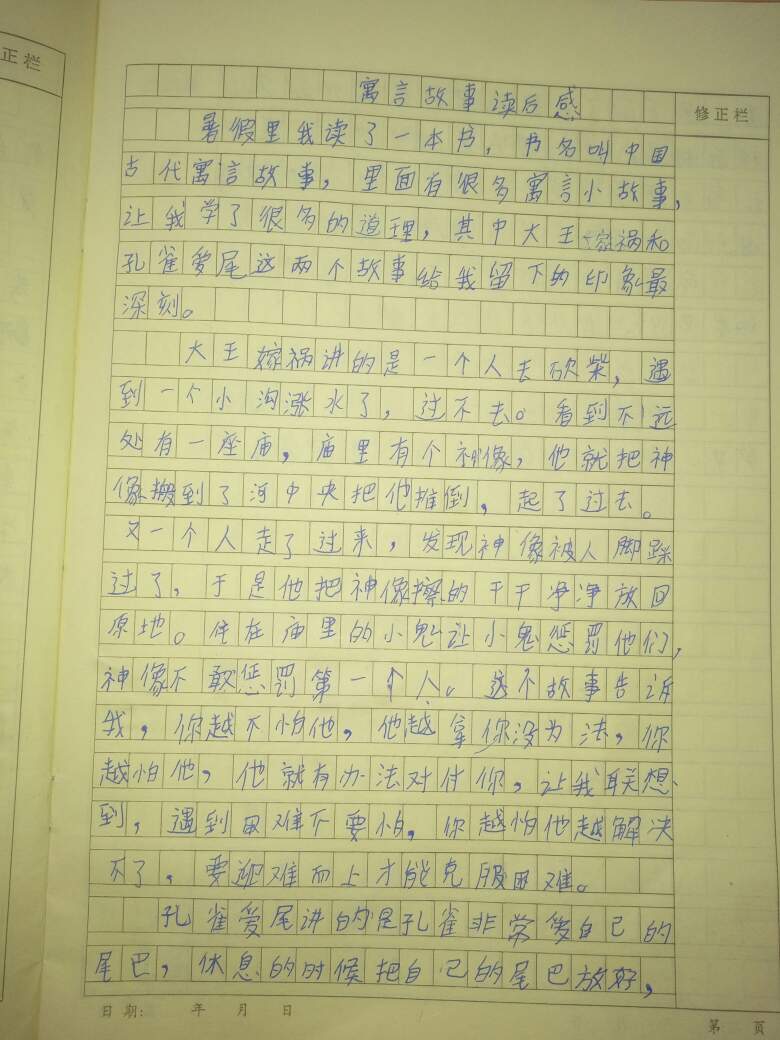 正栏
修正栏
寓言故事读后感
暑假里我读了一本书，书名叫中国
古代寓言故事，里面有很多寓言小故事，
让我学了很多的道理，其中大王嫁祸和
孔雀爱尾这两个故事给我留下的印象最
深刻。
大王嫁祸讲的是一个人去砍柴，遇
到一个小沟涨水了，过不去。看到不远
处有一座庙，庙里有个神像，他就把神
像搬到了河中央把他推倒，起了过去。
又一个人走了过来，发现神像被人脚踩
过了，于是他把神像擦的干干净净放回
原地。住在庙里的小鬼让小鬼惩罚他们，
神像不敢惩罚第一个人。这个故事告诉
我，你越不怕他，他越拿你没为法，你
越怕他，他就有办法对付你，让我联想
到，遇到困难不要怕，你越怕他越解决
不了，要迎难而上才能克服困难。
孔雀爱尾讲的是孔雀非常爱自己的
尾巴，休息的时候把自己的尾巴放好，
日期： 年 月 日
第 页